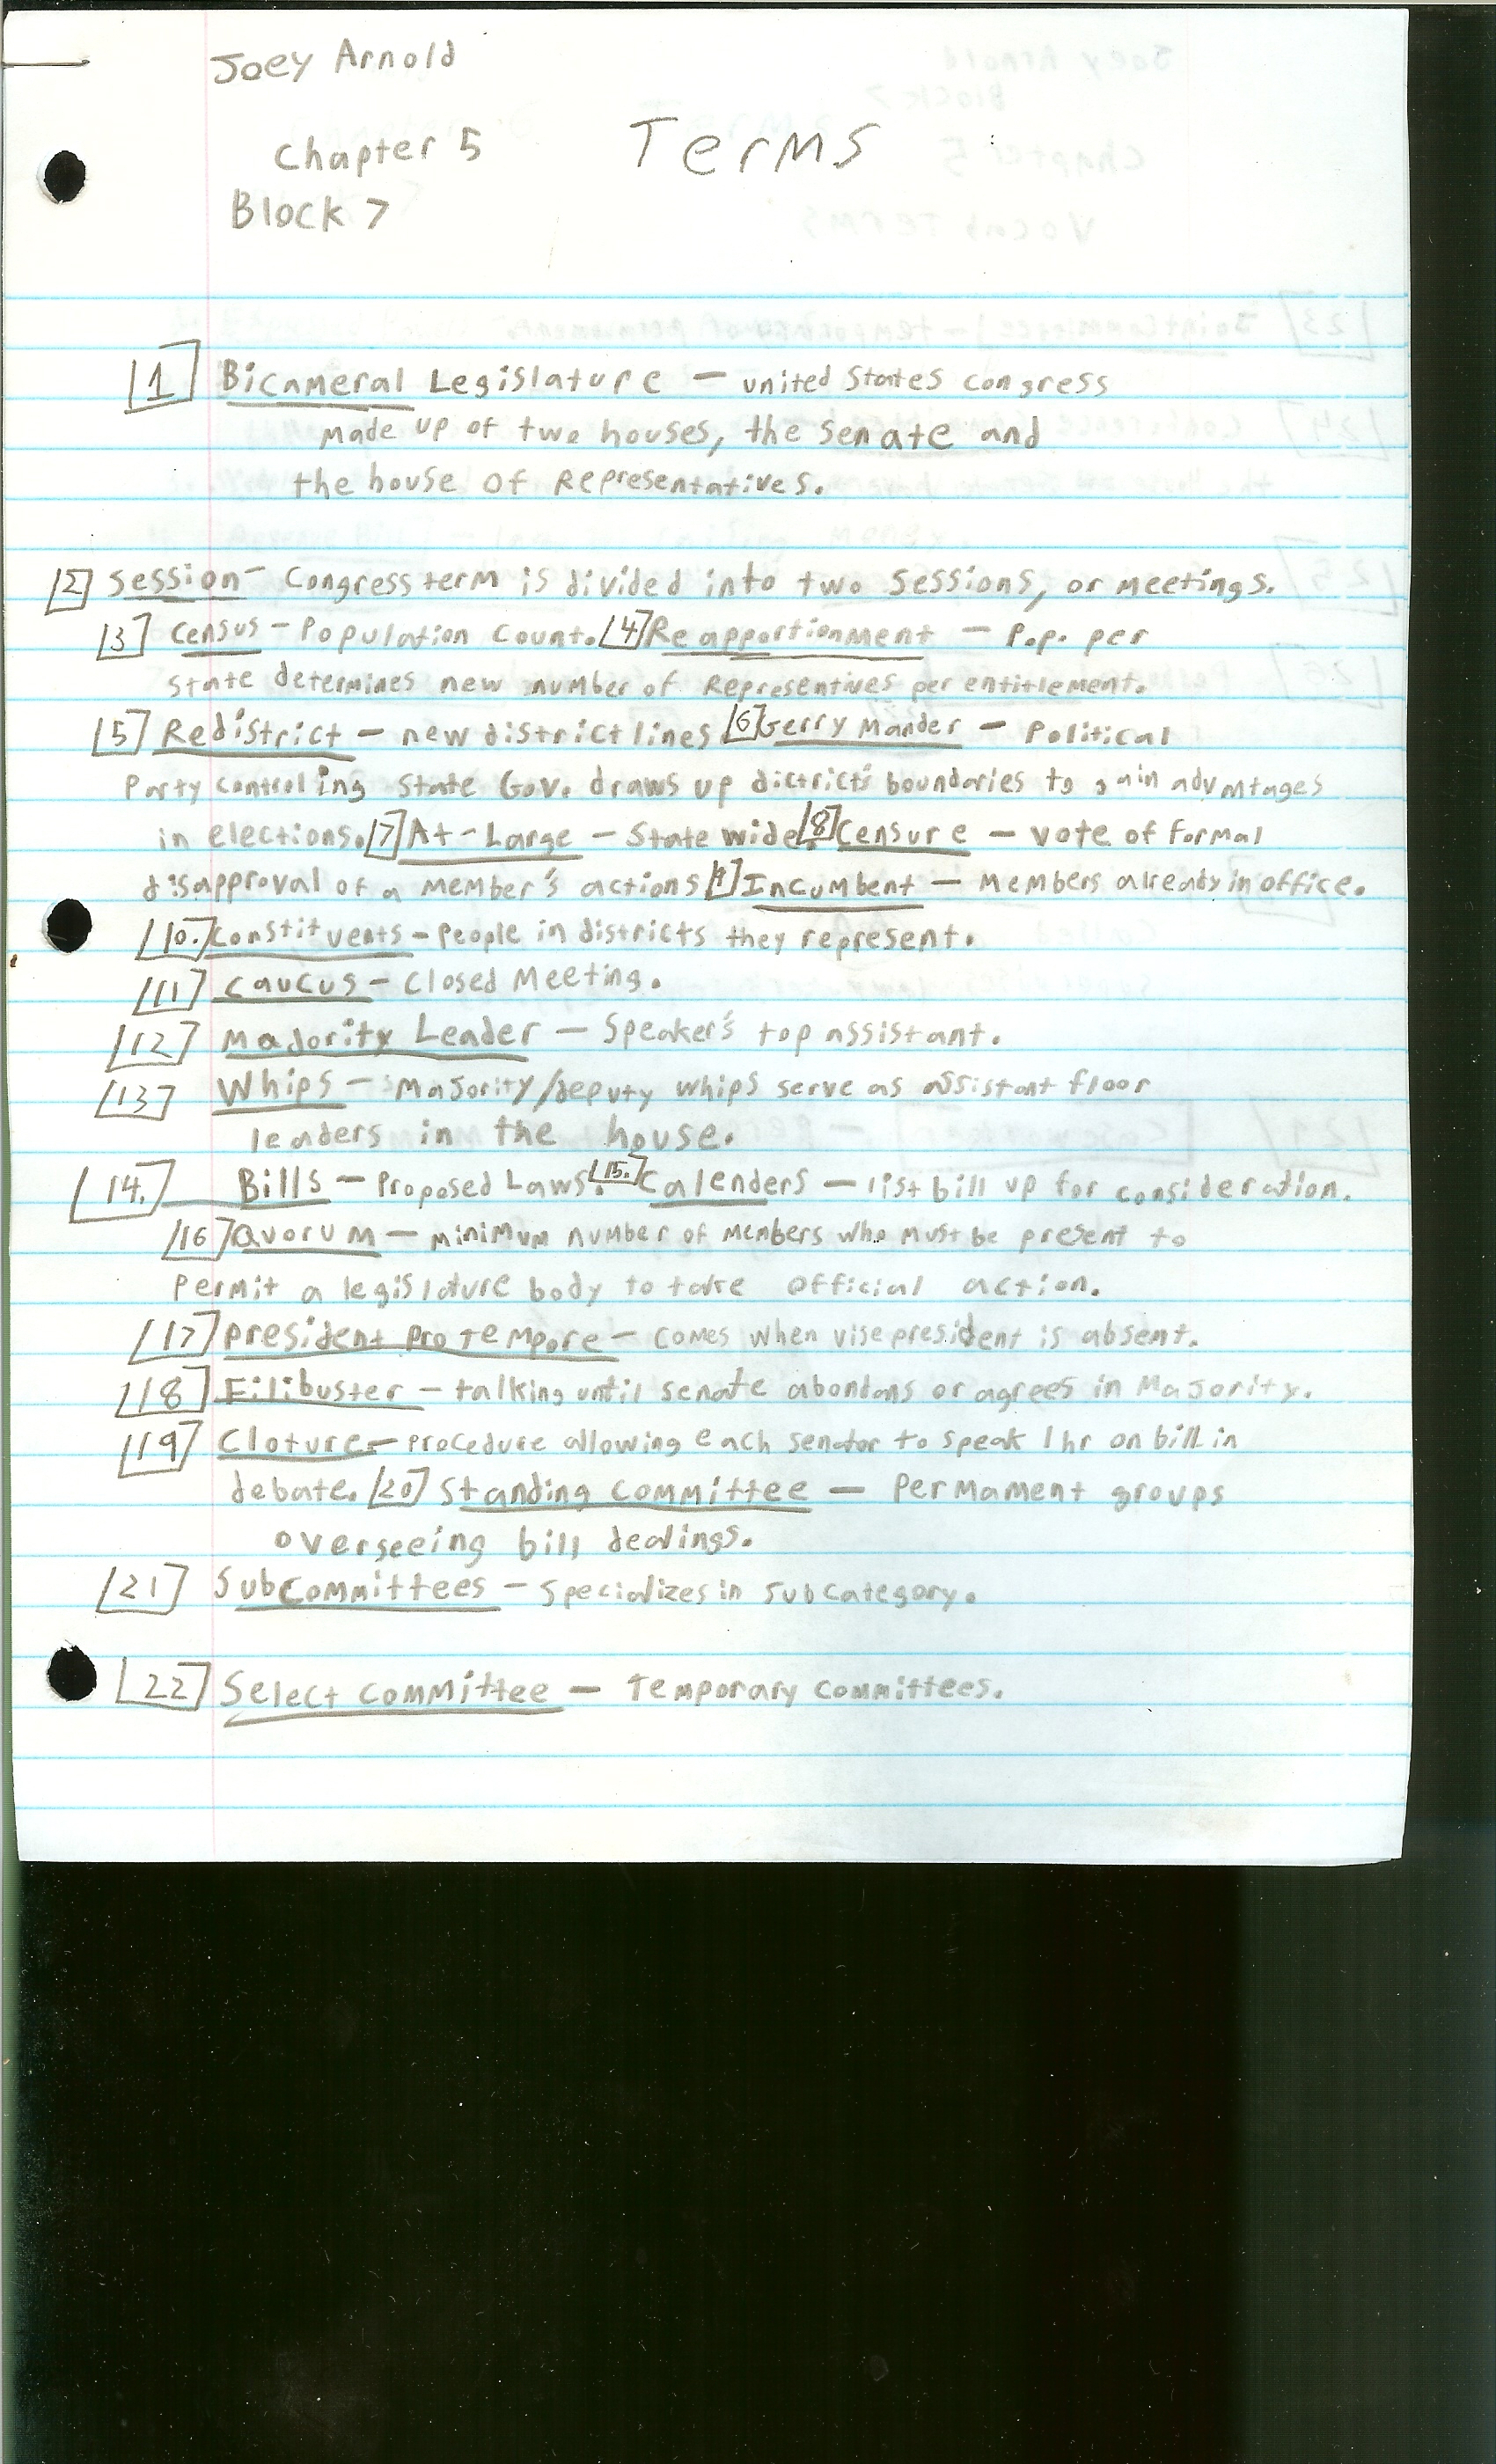 Joey Arnold
Chapter 5 Terms
Block 7
[1] Bicameral Legislature – united States congress
made up of two houses, the senate and
the house of Representatives.
[2] Session – Congress term is divided into two sessions, or meetings.
[3] Census – Population Count. [4] Reapportionment – Pop. per
state determines new number of Representives per entitlement.
[5] Redistrict – new district lines [6] Gerry Mander – Political
Party controling State Gov. draws up dictrict's boundaries to gain advntages
in elections. [7] At-Large – State wide. [8] Censure – vote of formal
disapproval of a member's actions [9] Incumbent – Members already in office.
[10.] constituents – People in districts they represent.
[11] caucus – Closed Meeting.
[12] Majority Leader – Speaker's top assistant.
[13] Whips – Majority/deputy whips serve as assistant floor
leaders in the house.
[14.] Bills – Proposed Laws. [15.] Calenders – list bill up for consideration.
[16] Quorum – minimum number of members who must be present to
permit a legislature body to take official action.
[17] president pro tempore – comes when vise president is absent.
[18] Filibuster – talking until senate abondans or agrees in Majority.
[19] Cloture – procedure allowing each senator to speak 1hr on bill in
debate. [20] Standing committee – Permament groups
overseeing bill dealings.
[21] Subcommittees – Specializes in subcategory.
[22] Select committee – Temporary committees.